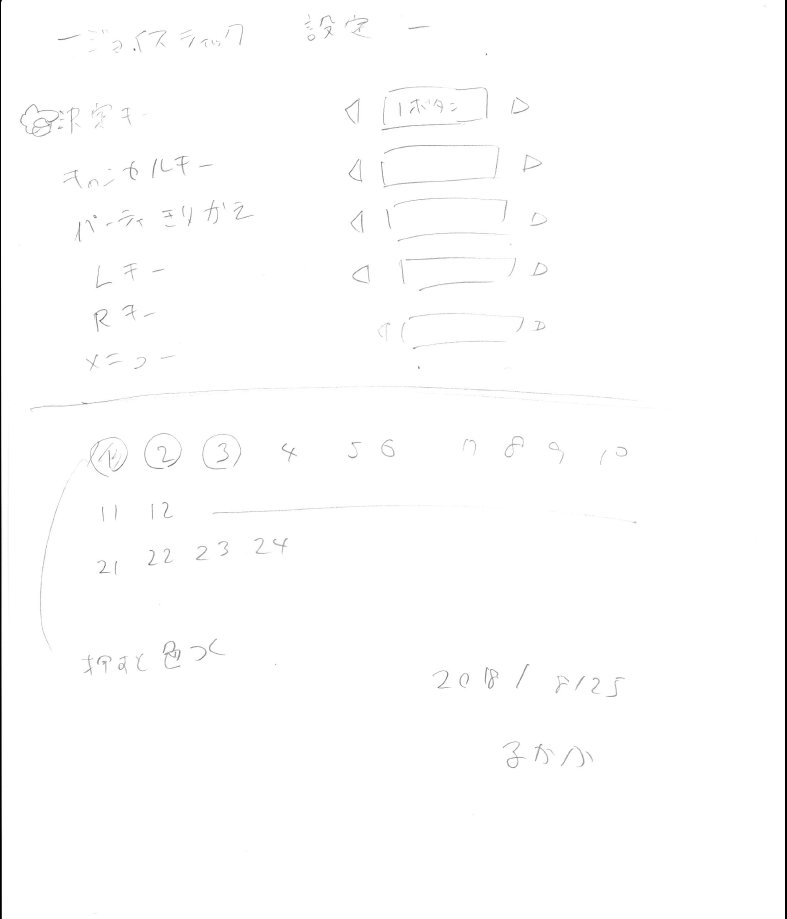 ージョイスティック 設定ー
決定キー ◁ 1ボタン ▷
キャンセルキー ◁ ▷
パーティきりかえ ◁ ▷
Lキー ◁ ▷
Rキー ◁ ▷
メニュー
1 2 3 4 5 6 7 8 9 10
11 12
21 22 23 24
押すと色つく
2018/8/25